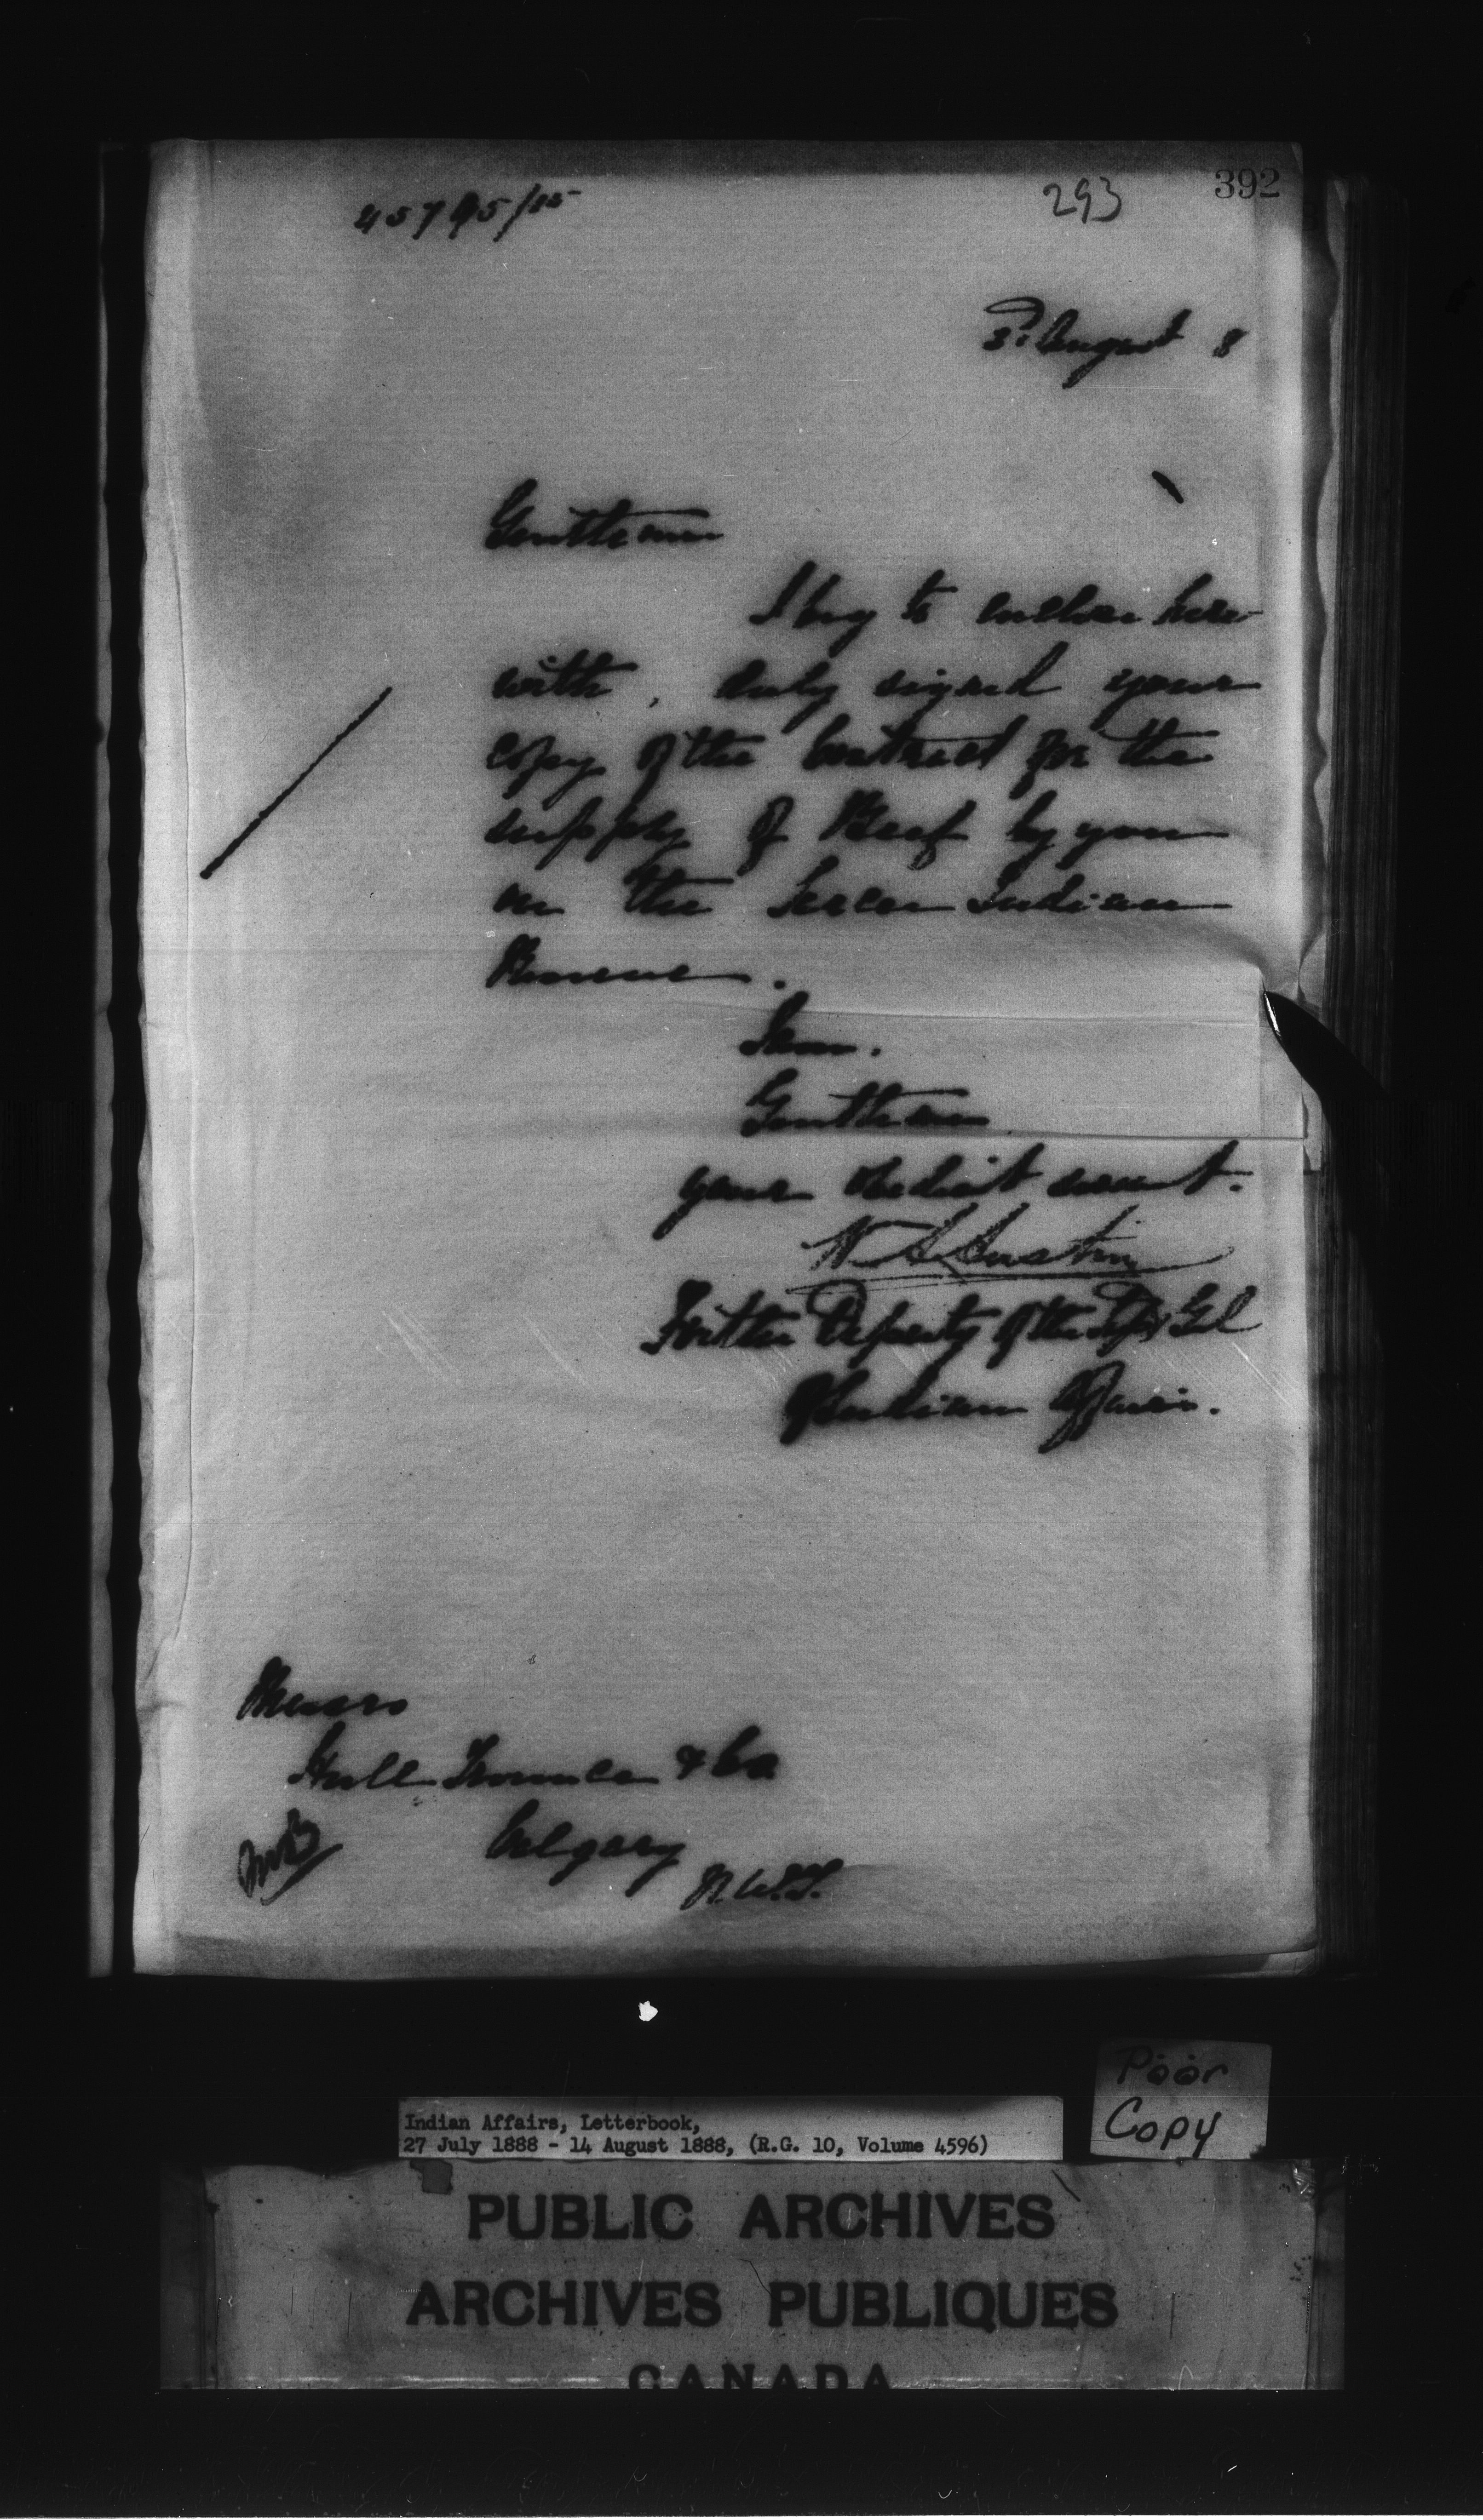 392
293
45795/85
3rd August 8
Gentlemen
I beg to enclose here-
with, duly signed your
copy of the Contract for the
supply of Beef by you
on the Sarcee Indian
Reserve.
I am.
Gentlemen
your obedient servant.
Austin
For the Deputy of the Supt Genl
of Indian Affairs.
Messrs
Hull & Co
Calgary
N.W.T.
Poor
Copy
Indian Affairs, Letterbook,
27 July 1888 - 14 August 1888, (R.G. 10, Volume 4596)
PUBLIC ARCHIVES
ARCHIVES PUBLIQUES
CANADA